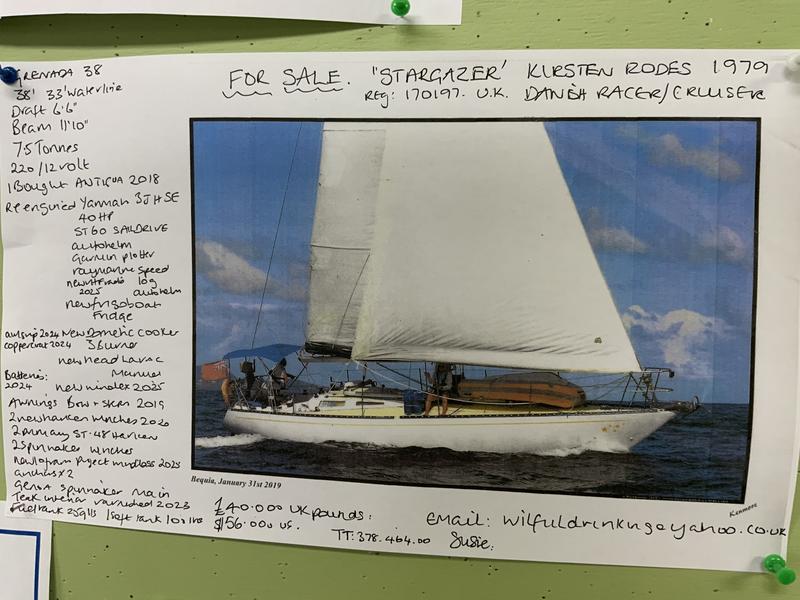 FOR SALE. 'STARGAZER' KIRSTEN RODES 1979
REG: 170197. U.K. DANISH RACER/CRUISER
GRENADA 38
38' 33' waterline
Draft 6'6"
Beam 11'10"
7.5 Tonnes
220/12 volt
Bought ANTIGUA 2018
Re engined Yanmah 3JHSE
40HP
ST60 SAILDRIVE
autohelm
Garmin plotter
raymarine speed
log
2025 autohelm
new frigoboat
Fridge
2024 New Dometic Cooker
coppercoat 2024 3 burner
new head Lavac
Batteries: Manual
2024 new windex 2025
Awnings Bow + stern 2019
2 new harken winches 2020
2 primary ST-48 Harken
2 spinnaker winches
2025
anchors x 2
Genoa spinnaker main
Teak interior varnished 2023
Fuel tank
Bequia, January 31st 2019
Kenmore
£40.000 UK pounds:
$156.000 US.
TT: 378.464.00
EMail: wilfuldrinking@yahoo.co.uk
Susie: